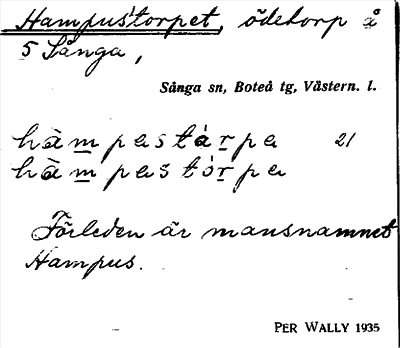 Hampustorpet, ödetorp å
5 Sånga,
Sånga sn, Boteå tg, Västern. l.
hàm̲pastár̲pa 21
hàm̲pastór̲pa
Förleden är mansnamnet
Hampus.
PER WALLY 1935